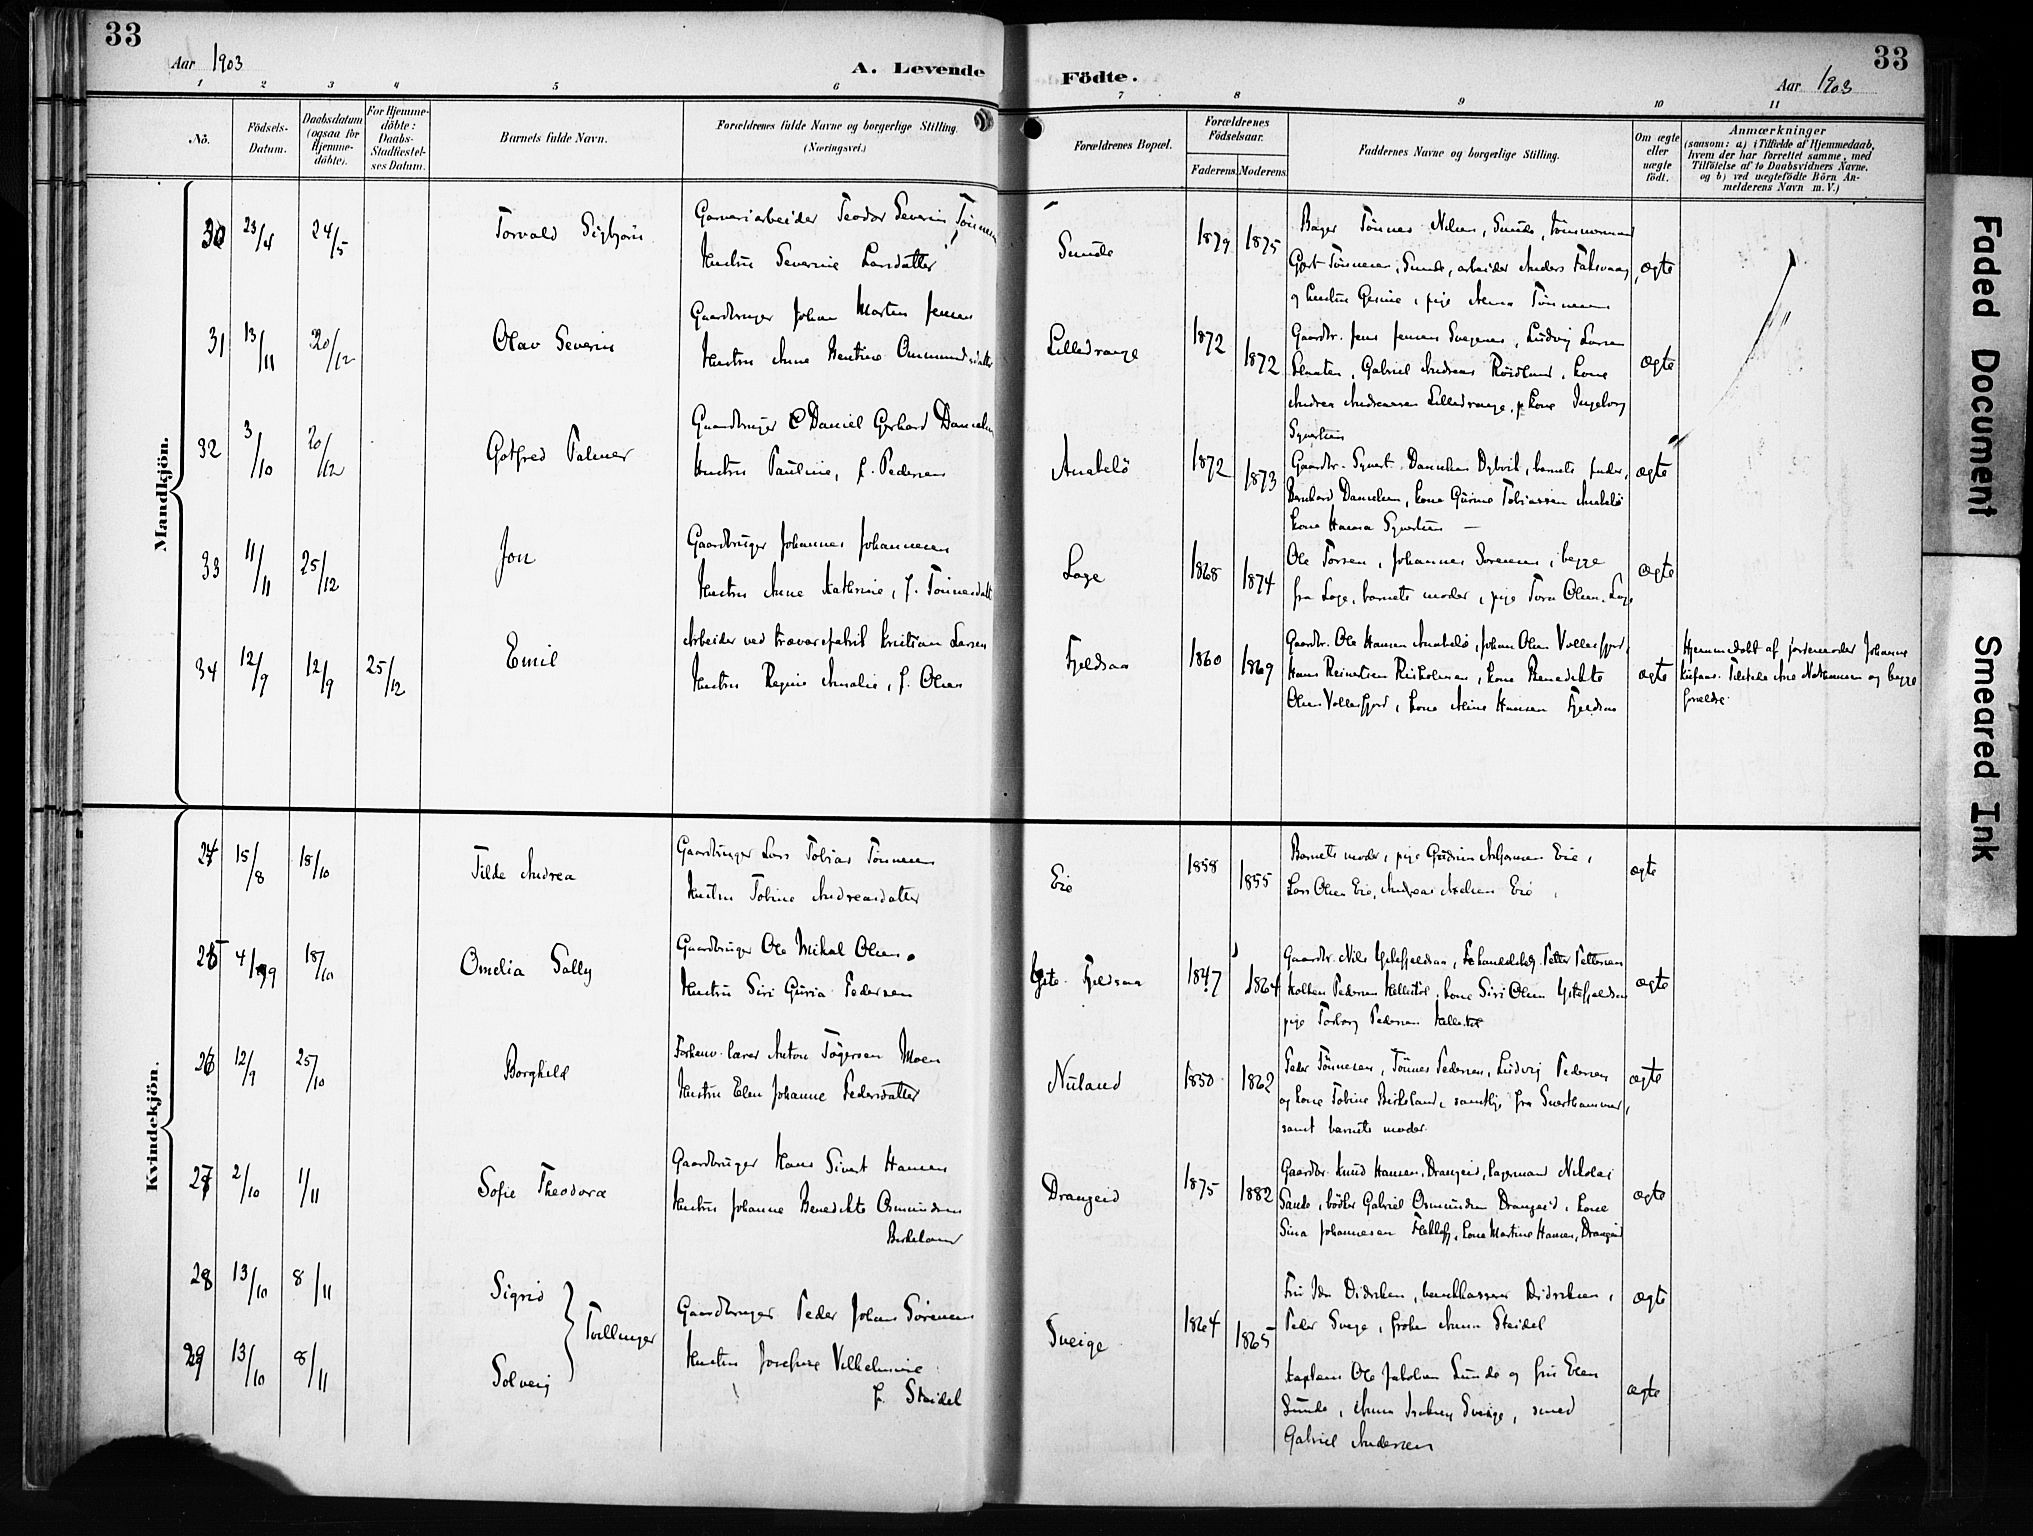 33
Aar 1903
A. Levende
Födte.
Aar 1903
33
1 2 3 4 5 6 7 8 9 10 11
No.
Födsels-Datum.
Daabsdatum (ogsaa for Hjemmedöbte).
For Hjemmedöbte: Daabs-Stadfæstelses Datum.
Barnets fulde Navn.
Forældrenes fulde Navne og borgerlige Stilling. (Næringsvei.)
Forældrenes Bopæl.
Forældrenes Födselsaar.
Faderens. Moderens.
Faddernes Navne og borgerlige Stilling.
Om ægte eller uægte födt.
Anmærkninger
(saasom: a) i Tilfælde af Hjemmedaab, hvem der har forrettet samme, med Tilföielse af to Daabsvidners Navne. og b) ved uægtefödte Börn Anmelderens Navn m. V.)
Mandkjön.
30 23/4 24/5 Torvald Sigbjørn
Garveriarbeider Teodor Severin Tønnesen
Hustru Severine Larsdatter
Sunde 1879 1875
Tønnes Nilsen, Sunde,
Tønnesen, Sunde, arbeider Anders
og hustru Gesine, pige Anna Tønnesen
ægte
31 13/11 20/12 Olav Severin
Gaardbruger Johan Martin Jensen
Hustru Anne Bentine Ommundsdatter
Lilledrange 1872 1872
Gaardbr. Jens Jensen Svegenes, Ludvig Larsen
Gabriel Andreas Røidland, kone
Andrea Andreassen Lilledrange, kone Ingeborg
Syvertsen
ægte
32 3/10 20/12 Gotfred Palmer
Gaardbruger Daniel Gerhard Danielsen
Hustru Pauline, f. Pedersen
Anabelø 1872 1873
Gaardbr. Syvert Danielsen Dybvik, barnets fader,
Bernhard Danielsen, kone Gurine Tobiassen Anabelø
kone Hanna Syvertsen —
ægte
33 11/11 25/12 Jon
Gaardbruger Johannes Johannesen
Hustru Anne Kathrine, f. Tønnesdatt
Loge 1868 1874
Ole Torsen, Johannes Sørensen, begge
fra Loge, barnets moder, pige Tora Olsen, Loge
ægte
34 12/9 12/9 25/12 Emil
Arbeider ved trævarefabrik Kristian Larsen
Hustru Regine Amalie, f. Olsen
Fjeldsaa 1860 1869
Gaardbr. Ole Hansen Anabelø, Johan Olsen Vollesfjord,
Hans Reinertsen Risholmen, kone Benedikte
Olsen Vollesfjord, kone Aline Hansen Fjeldsaa
ægte
Hjemmedøbt af jordemoder Johanne
Tilstede Ane Nathansen og begge
forældre
Kvindekjön.
24 15/8 18/10 Tilde Andrea
Gaardbruger Lars Tobias Tønnesen
Hustru Tobine Andreasdatter
Eie 1858 1855
Barnets moder, pige Gudrun Eie,
Lars Olsen Eie, Andreas Axelsen Eie
ægte
25 4/9 18/10 Omelia Sally
Gaardbruger Ole Mikal Olsen
Hustru Siri Guria Pedersen
Yste. Fjeldsaa 1847 1864
Gaardbr. Nils Ystefjeldsaa, Petter Pettersen
Pedersen kone Siri Olsen Ystefjeldsaa
pige Torborg Pedersen
ægte
26 12/9 25/10 Borghild
Forhenv. lærer Anton Tøgersen Moen
Hustru Elen Johanne Pedersdatter
Nuland 1850 1862
Peder Tønnesen, Tønnes Pedersen, Ludvig Pedersen
og kone Tobine Birkeland, samtlige fra
samt barnets moder.
ægte
27 2/10 1/11 Sofie Theodora
Gaardbruger Hans Sivert Hansen
Hustru Johanne Benedikte Osmundsen
Birkeland
Drangeid 1875 1882
Gaardbr. Knud Hansen, Drangeid, lagermand Nikolai
Sande, bødker Gabriel Osmundsen Drangeid, kone
Sina Johannesen kone Martine Hansen, Drangeid
ægte
28 13/10 8/11 Sigrid
29 13/10 8/11 Solveig
Tvillinger
Gaardbruger Peder Johan Sørensen
Hustru Josefine Vilhelmine
f. Steidel
Sveige 1864 1865
Fru Ida Didriksen, bankkasserer Didriksen,
Peder Svege, frøken Anna Steidel
ægte
Kaptein Ole Jakobsen Sunde og fru Elen
Sunde, Anna Isaksen Sveige, smed
Gabriel Andersen
ægte
Faded Document
Smeared Ink